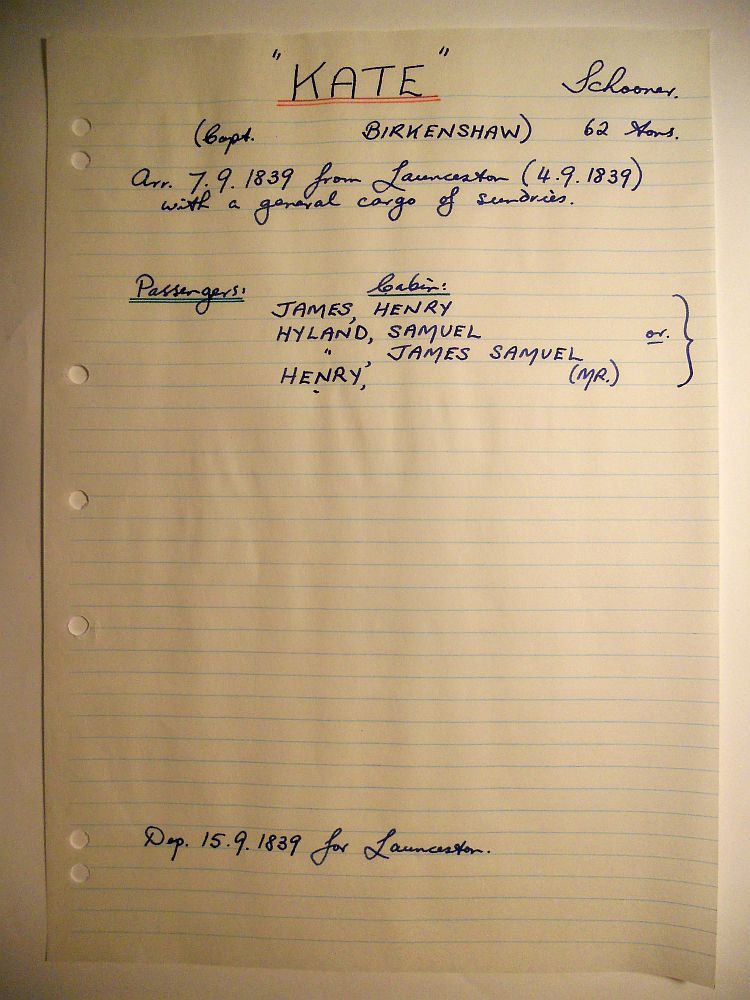 "KATE" Schooner.
(Capt. BIRKENSHAW) 62 tons.
Arr. 7.9.1839 from Launceston (4.9.1839)
with a general cargo of sundries.
Passengers: Cabin:
JAMES, HENRY
HYLAND, SAMUEL or.
" , JAMES SAMUEL
HENRY, (MR.)
Dep. 15.9.1839 for Launceston.